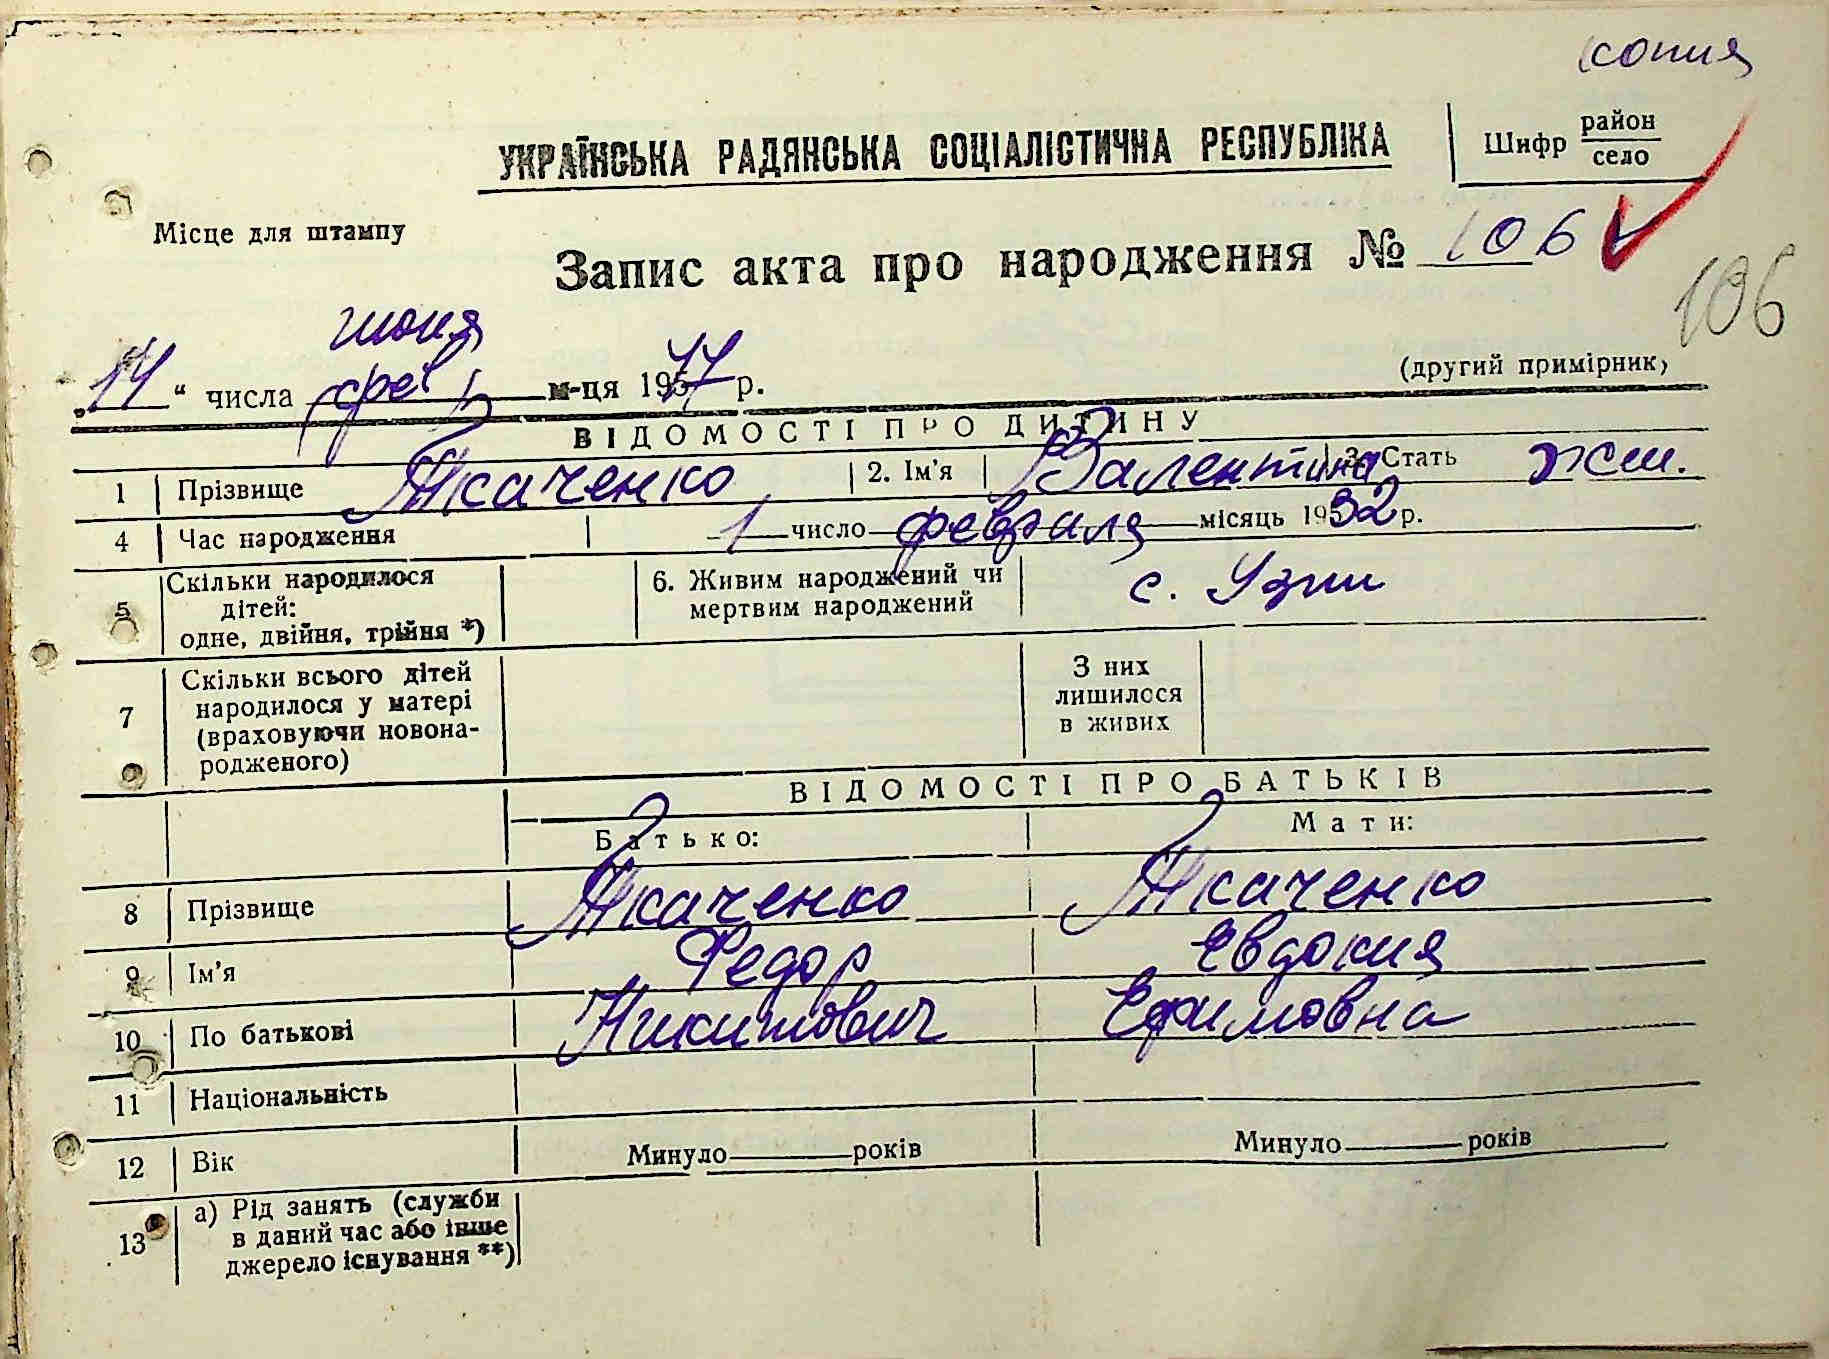 копия
УКРАЇНСЬКА РАДЯНСЬКА СОЦІАЛІСТИЧНА РЕСПУБЛІКА
Шифр район село
Місце для штампу
Запис акта про народження № 106
106
июня
„14“ числа фев м-ця 1977 р.
(другий примірник)
ВІДОМОСТІ ПРО ДИТИНУ
1 Прізвище Ткаченко 2. Ім'я Валентина 3. Стать жен.
4 Час народження 1 число февраля місяць 1932 р.
5 Скільки народилося дітей: одне, двійня, трійня *) 6. Живим народжений чи мертвим народжений с. Узин
7 Скільки всього дітей народилося у матері (враховуючи новонародженого) З них лишилося в живих
ВІДОМОСТІ ПРО БАТЬКІВ
Батько: Мати:
8 Прізвище Ткаченко Ткаченко
9 Ім'я Федор Евдокия
10 По батькові Никитович Ефимовна
11 Національність
12 Вік Минуло років Минуло років
13 а) Рід занять (служби в даний час або інше джерело існування **)